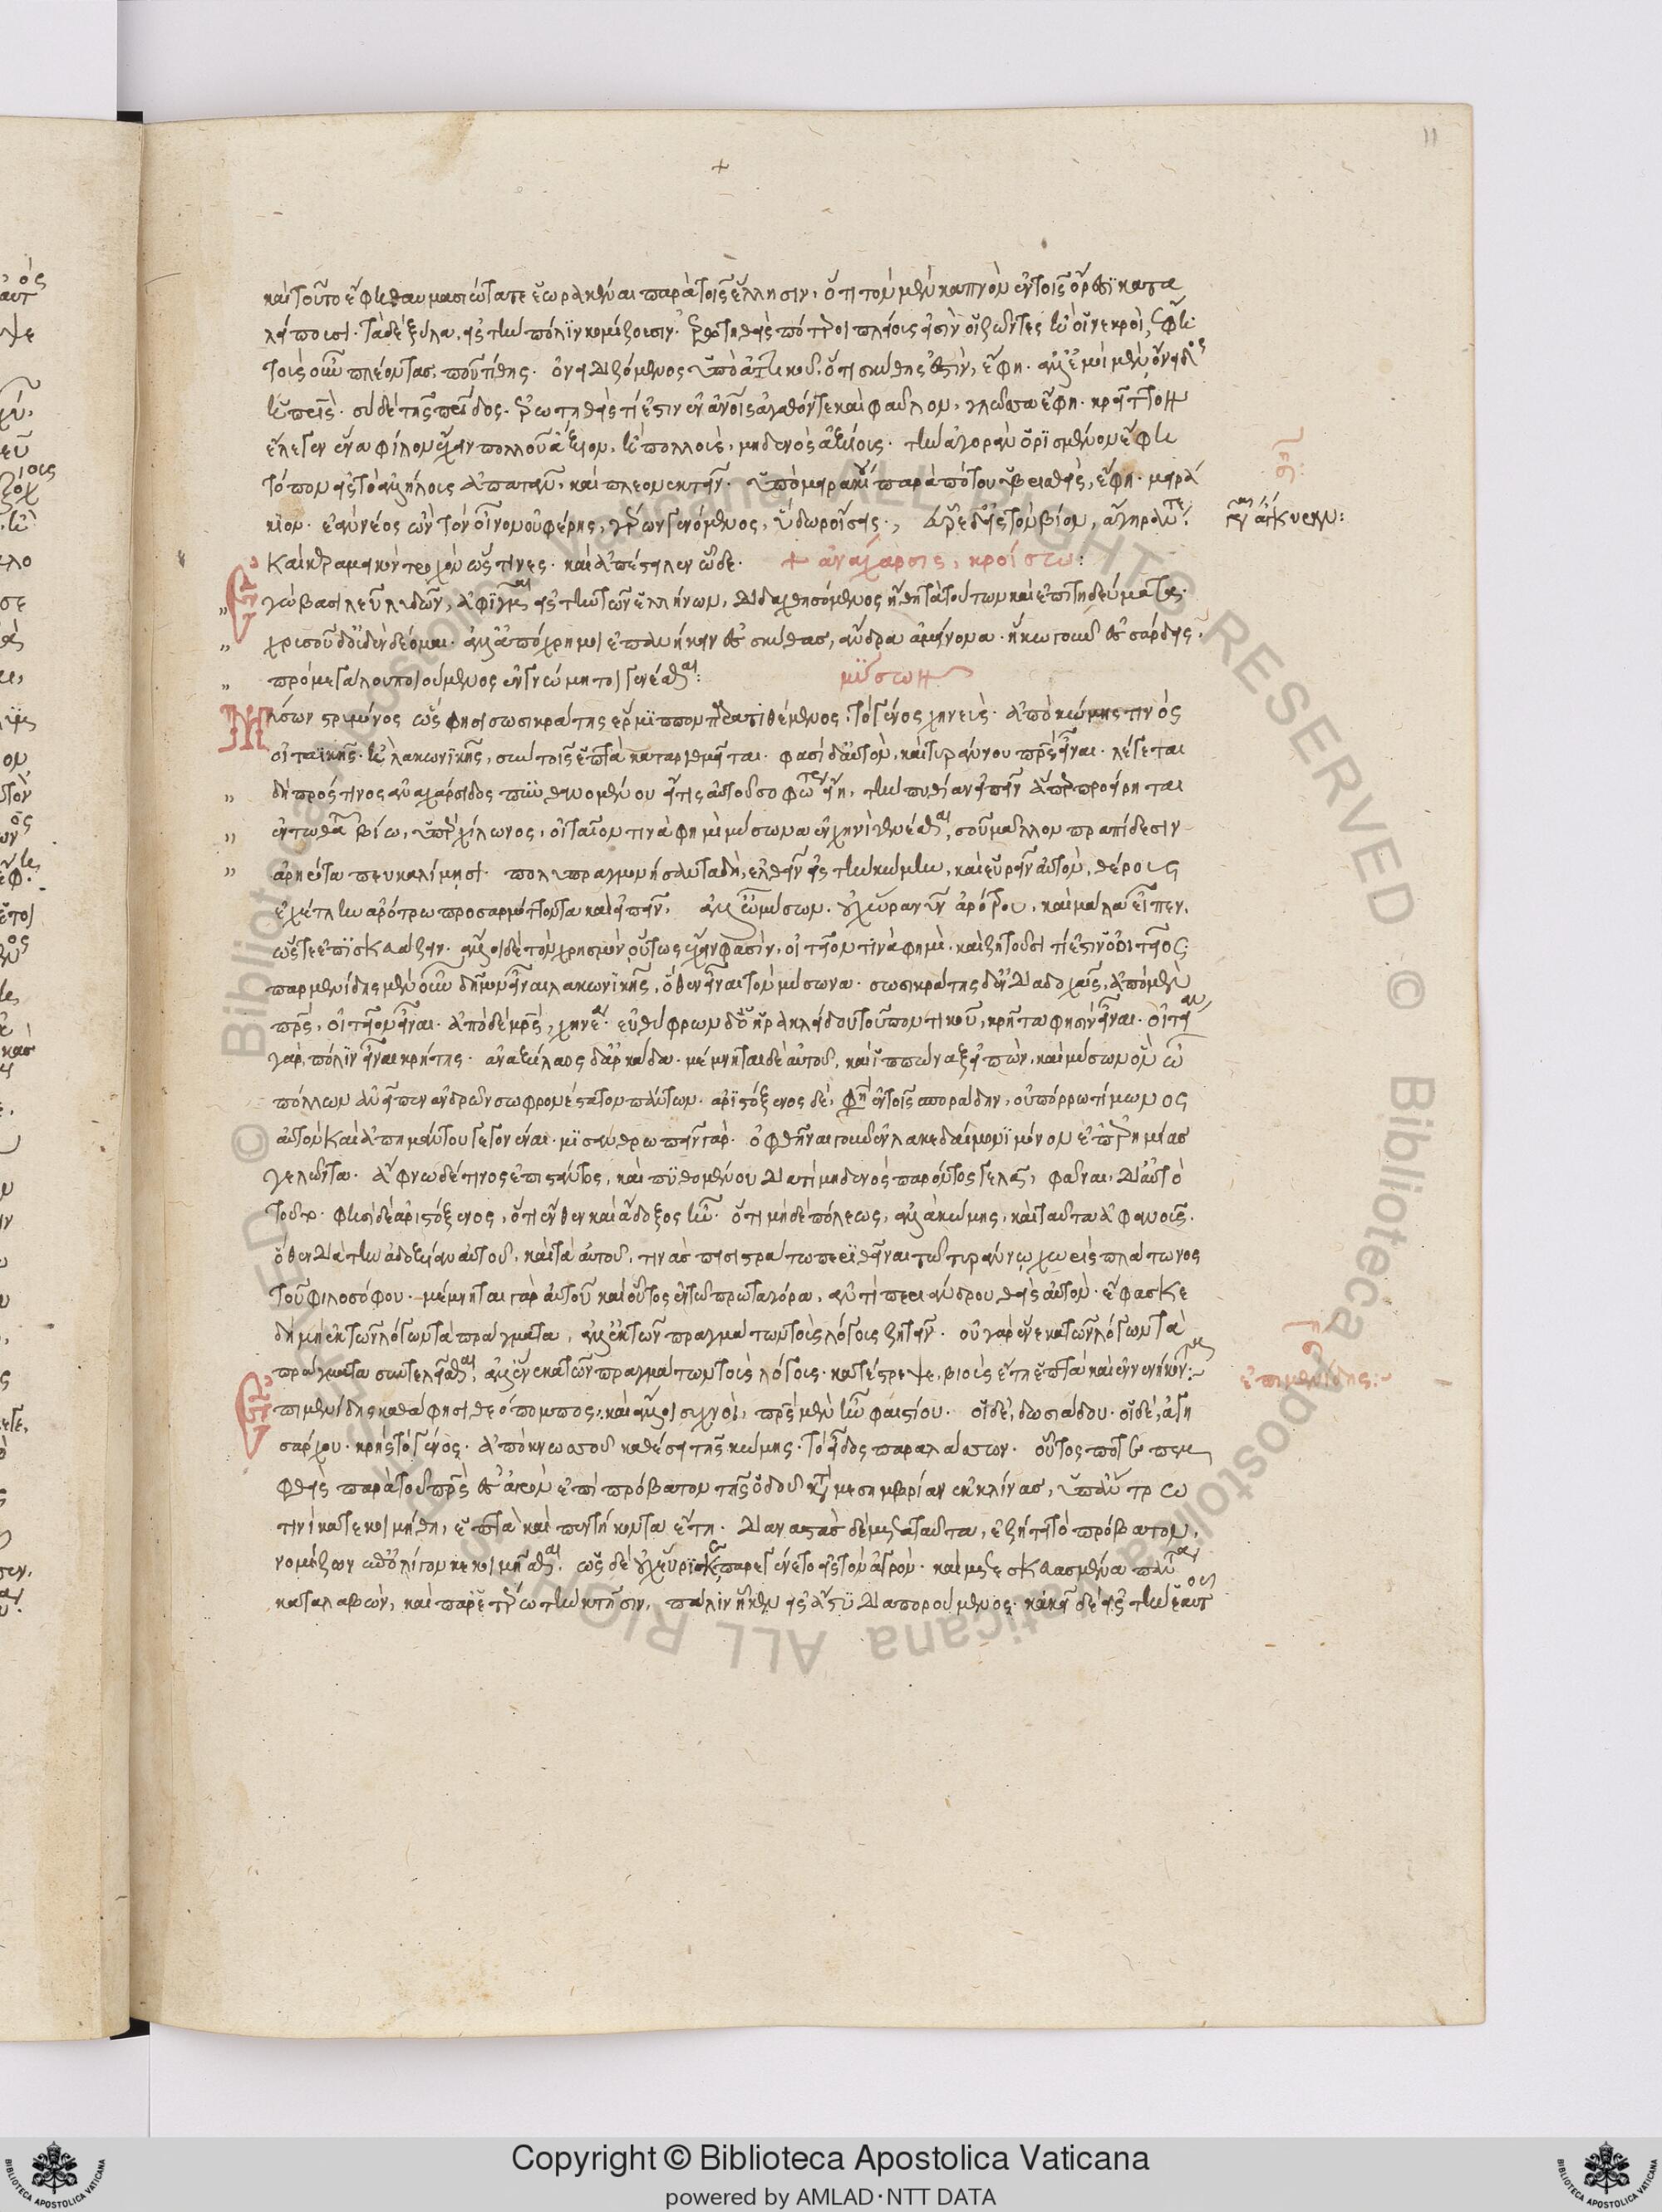 11
+
καὶ τοῦτο ἔφη θαυμασιώτατε ἑωρακέναι παρὰ τοῖς ἕλλησιν, ὅτι τὸν μὲν καπνὸν ἐν τοῖς ὄρεσι κατα
λείπουσι. τὰ δὲ ξύλα, εἰς τὴν πόλιν κομίζουσιν. ἐρωτηθεὶς πότεροι πλείους εἰσὶν οἱ ζῶντες ἢ οἱ νεκροί, ἔφη.
τοὺς οὖν πλέοντας, ποῦ τίθης. ὀνειδιζόμενος ὑπὸ ἀττικοῦ, ὅτι σκύθης ἐστίν, ἔφη. ἀλλ' ἐμοὶ μὲν ὄνειδος
ἡ πατρίς. σὺ δὲ τῆς πατρίδος. ἐρωτηθεὶς τί ἐστιν ἐν ἀνοις ἀγαθόν τε καὶ φαῦλον, γλῶσσα ἔφη. κρεῖττον
ἔλεγεν ἕνα φίλον ἔχειν πολλοῦ ἄξιον, ἢ πολλοὺς, μηδενὸς ἀξίους. τὴν ἀγορὰν ὡρισμένον ἔφη
τόπον εἰς τὸ ἀλλήλους ἀπατᾶν, καὶ πλεονεκτεῖν. ὑπὸ μειρακίου παρὰ πότον ὑβρισθεὶς, ἔφη. μειρά
κιον. ἐὰν νέος ὢν τὸν οἶνον οὐ φέρης, γέρων γενόμενος, ὕδωρ οἴσεις.
καὶ κεραμικὸν τροχὸν ὥς τινες. καὶ ἀπέστειλεν ὧδε. + ἀνάχαρσις, κροίσω:
Ἐγὼ βασιλεῦ λυδῶν, ἀφῖγμαι εἰς τὴν τῶν ἑλλήνων, διδαχθησόμενος ἤθη τὰ τούτων καὶ ἐπιτηδεύματα.
χρυσοῦ δ' οὐδὲν δέομαι. ἀλλ' ἀπόχρη μοι ἐπανήκειν ἐς σκύθας, ἄνδρα ἀμείνονα. ἥκω γοῦν ἐς σάρδεις,
πρὸ μεγάλου ποιούμενος ἐν γνώμη τοι γενέσθαι:
μύσων
Μύσων στρυμόνος ὥς φησι σωσικράτης ἕρμιππον παρατιθέμενος. τὸ γένος χηνεὺς. ἀπὸ κώμης τινὸς
οἰταϊκῆς. ἢ λακωνικῆς, σὺν τοῖς ἑπτὰ καταριθμεῖται. φασὶ δ' αὐτοῦ, καὶ τυράννου πρς εἶναι. λέγεται
δὴ πρός τινος ἀναχάρσιδος πυνθανομένου εἴ τις αὐτοῦ σοφώτερος εἴη, τὴν πυθίαν εἰπεῖν ἅπερ προείρηται
ἐν τῶ θαλ βίω, ὑπὲρ χίλωνος, οἰταῖον τινὰ φημὶ μύσωνα ἐν χηνὶ γενέσθαι, σοῦ μᾶλλον πραπίδεσιν
ἀρηρότα πευκαλίμησι. πολυπραγμονήσαντα δὴ, ἐλθεῖν εἰς τὴν κώμην, καὶ εὑρεῖν αὐτὸν, θέρους
ἐχέτλην ἀρότρω προσαρμόττοντα καὶ εἰπεῖν, ἀλλ' ὦ μύσων. οὐχ ὥρα νῦν ἀρότρου, καὶ μάλα εἶπεν,
ὥστε ἐπισκευάζειν. ἄλλοι δὲ τὸν χρησμὸν οὕτως ἔχειν φασίν, οἰτεῖον τινὰ φημὶ. καὶ ζητοῦσι τί ἐστιν ὁ οἰτεῖος.
παρμενίδης μὲν οὖν δῆμον εἶναι λακωνικῆς, ὅθεν εἶναι τὸν μύσωνα. σωσικράτης δ' ἐν διαδοχαῖς, ἀπὸ μὲν
πρς, οἰτεῖον εἶναι. ἀπὸ δὲ μρς, χηνέα. εὐθύφρων δ' ὁ ἡρακλείδου τοῦ ποντικοῦ, κρῆτα φησὶν εἶναι. οἰτείαν
γὰρ, πόλιν εἶναι κρήτης. ἀναξίλαος δ' ἀρκάδα. μέμνηται δὲ αὐτοῦ, καὶ ἱππώναξ εἰπών, καὶ μύσων ὃν ὡ
πόλλων ἀνεῖπεν ἀνδρῶν σωφρονέστατον πάντων. ἀριστόξενος δέ, φη ἐν τοῖς σποράδην, οὐ πόρρω τίμωνος
αὐτὸν καὶ ἀπημάντου γεγονέναι. μισανθρωπεῖν γάρ. ὀφθῆναι γοῦν ἐν λακεδαίμονι μόνον ἐπ' ἐρημίας
γελῶντα. ἄφνω δέ τινος ἐπιστάντος, καὶ πυθομένου διατί μηδενὸς παρόντος γελᾷ, φάναι, δι' αὐτὸ
τοῦτο. φησὶ δὲ ἀριστόξενος, ὅτι ἔνθεν καὶ ἄδοξος ἦν. ὅτι μηδὲ πόλεως, ἀλλὰ κώμης, καὶ ταῦτα ἀφανοῦς.
ὅθεν διὰ τὴν ἀδοξίαν αὐτοῦ, καὶ τὰ αὐτοῦ, τινὰς πεισιστράτω περιθεῖναι τῶ τυράννω χωρὶς πλάτωνος
τοῦ φιλοσόφου. μέμνηται γὰρ αὐτοῦ καὶ οὗτος ἐν τῶ πρωταγόρα, ἀντὶ περιάνδρου θεὶς αὐτὸν. ἔφασκε
δὴ μὴ ἐκ τῶν λόγων τὰ πράγματα, ἀλλ' ἐκ τῶν πραγμάτων τοὺς λόγους ζητεῖν. οὐ γὰρ ἕνεκα τῶν λόγων τὰ
πράγματα συντελεῖσθαι, ἀλλ' ἕνεκα τῶν πραγμάτων τοὺς λόγους. κατέστρεψε, βιοὺς ἔτη ἑπτὰ καὶ ἐνενήκοντα:
ἐπιμενίδης:
Ἐπιμενίδης καθά φησι θεόπομπος, καὶ ἄλλοι συχνοὶ, πρς μὲν ἦν φαιστίου. οἱ δὲ, δωσιάδου. οἱ δὲ, ἀγη
σάρχου. κρὴς τὸ γένος. ἀπὸ κνωσσοῦ καθέσει τῆς κώμης. τὸ εἶδος παραλάσσων. οὗτος ποτὲ πεμ
φθεὶς παρὰ τοῦ πρς ἐς ἀγρὸν ἐπὶ πρόβατον τῆς ὁδοῦ κατὰ μεσημβρίαν ἐκκλίνας, ὑπ' ἄντρω
τινὶ κατεκοιμήθη, ἑπτὰ καὶ πεντήκοντα ἔτη. διαναστὰς δὲ μετὰ ταῦτα, ἐζήτει τὸ πρόβατον,
νομίζων ἐπ' ὀλίγον κεκοιμῆσθαι. ὡς δὲ οὐχ εὕρισκε, παρεγένετο εἰς τὸν ἀγρόν. καὶ μετεσκευασμένα πάντα
καταλαβών, καὶ παρ' ἑτέρω τὴν κτῆσιν, πάλιν ἧκεν εἰς ἄστυ διαπορούμενος. κἀκεῖ δὲ εἰς τὴν ἑαυτοῦ
Copyright © Biblioteca Apostolica Vaticana
powered by AMLAD·NTT DATA